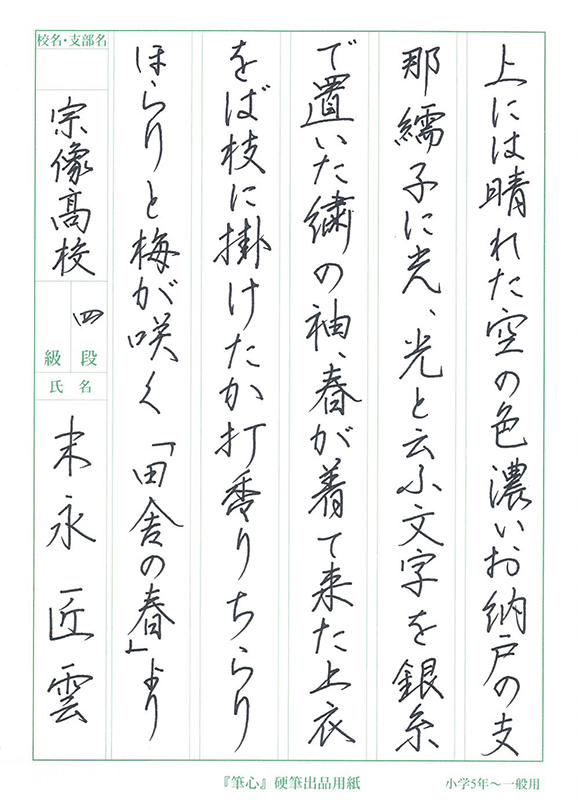 上には晴れた空の色濃いお納戸の支
那繻子に光、光と云ふ文字を銀糸
で置いた繍の袖、春が着て来た上衣
をば枝に掛けたか打香りちらり
ほらりと梅が咲く「田舎の春」より
校名・支部名
宗像高校
四
級 段
氏名
末永 匠雲
『筆心』硬筆出品用紙
小学5年〜一般用